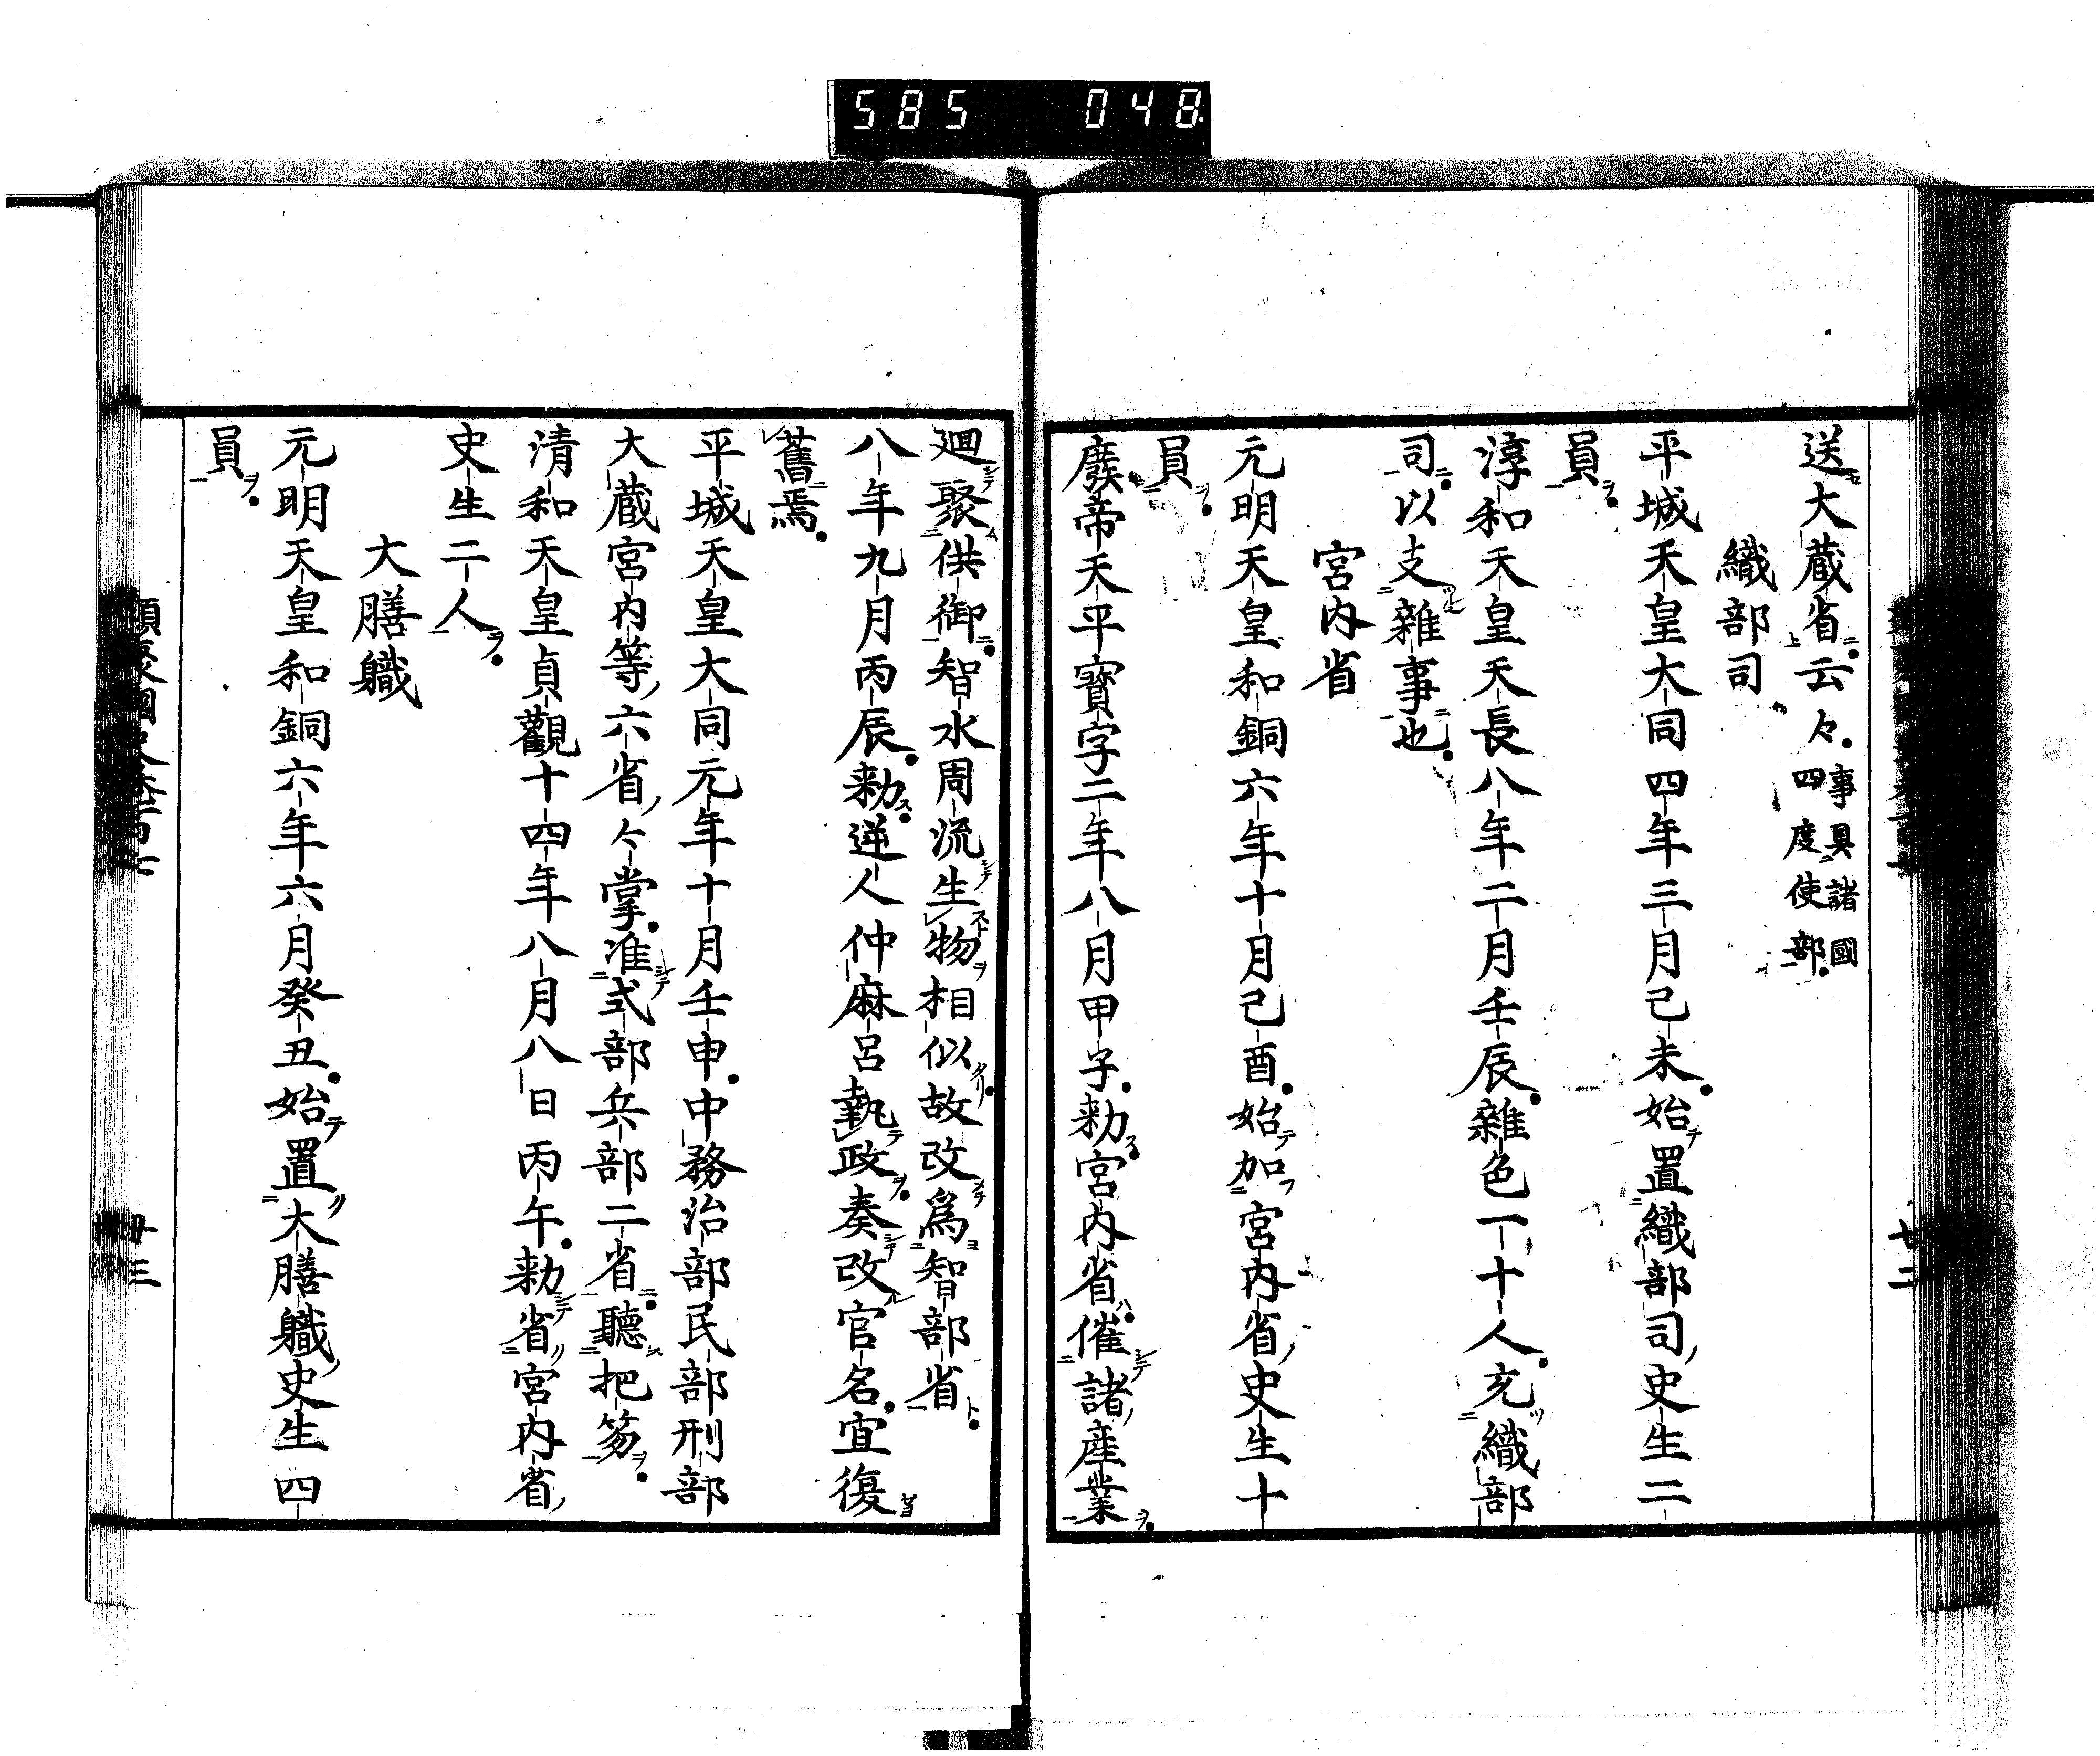 585 048
送大蔵省云々事具諸國
四度使部
織部司
平城天皇大同四年三月己未始置織部司史生二
員
淳和天皇天長八年二月壬辰雜色一十人充織部
司以支雜事也
宮内省
元明天皇和銅六年十月己酉始加宮内省史生十
員
廢帝天平寳字二年八月甲子勅宮内省催諸産業
廿三
廻聚供御智水周流生物相似故改爲智部省
八年九月丙辰勅逆人仲麻呂執政奏改官名宜復
舊焉
平城天皇大同元年十月壬申中務治部民部刑部
大蔵宮内等六省々掌准式部兵部二省聽把笏
清和天皇貞觀十四年八月八日丙午勅省宮内省
史生二人
大膳職
元明天皇和銅六年六月癸丑始置大膳職史生四
員
類聚國史卷百七